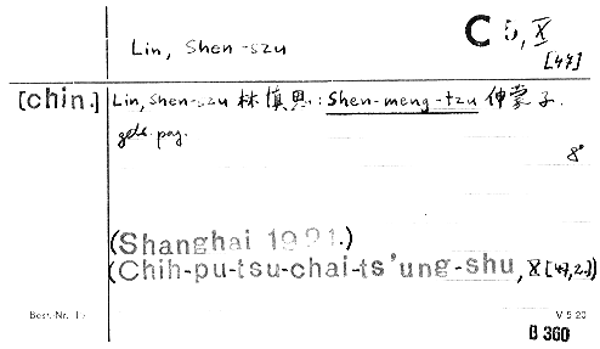 Lin, Shen-szu
C 5, X
[47]
[chin.] Lin, Shen-szu 林慎思: Shen-meng-tzu 伸蒙子.
getr. pag.
8°
(Shanghai 1921.)
(Chih-pu-tsu-chai-ts'ung-shu, X [47,2.])
Best.-Nr.
V 5 20
D 360